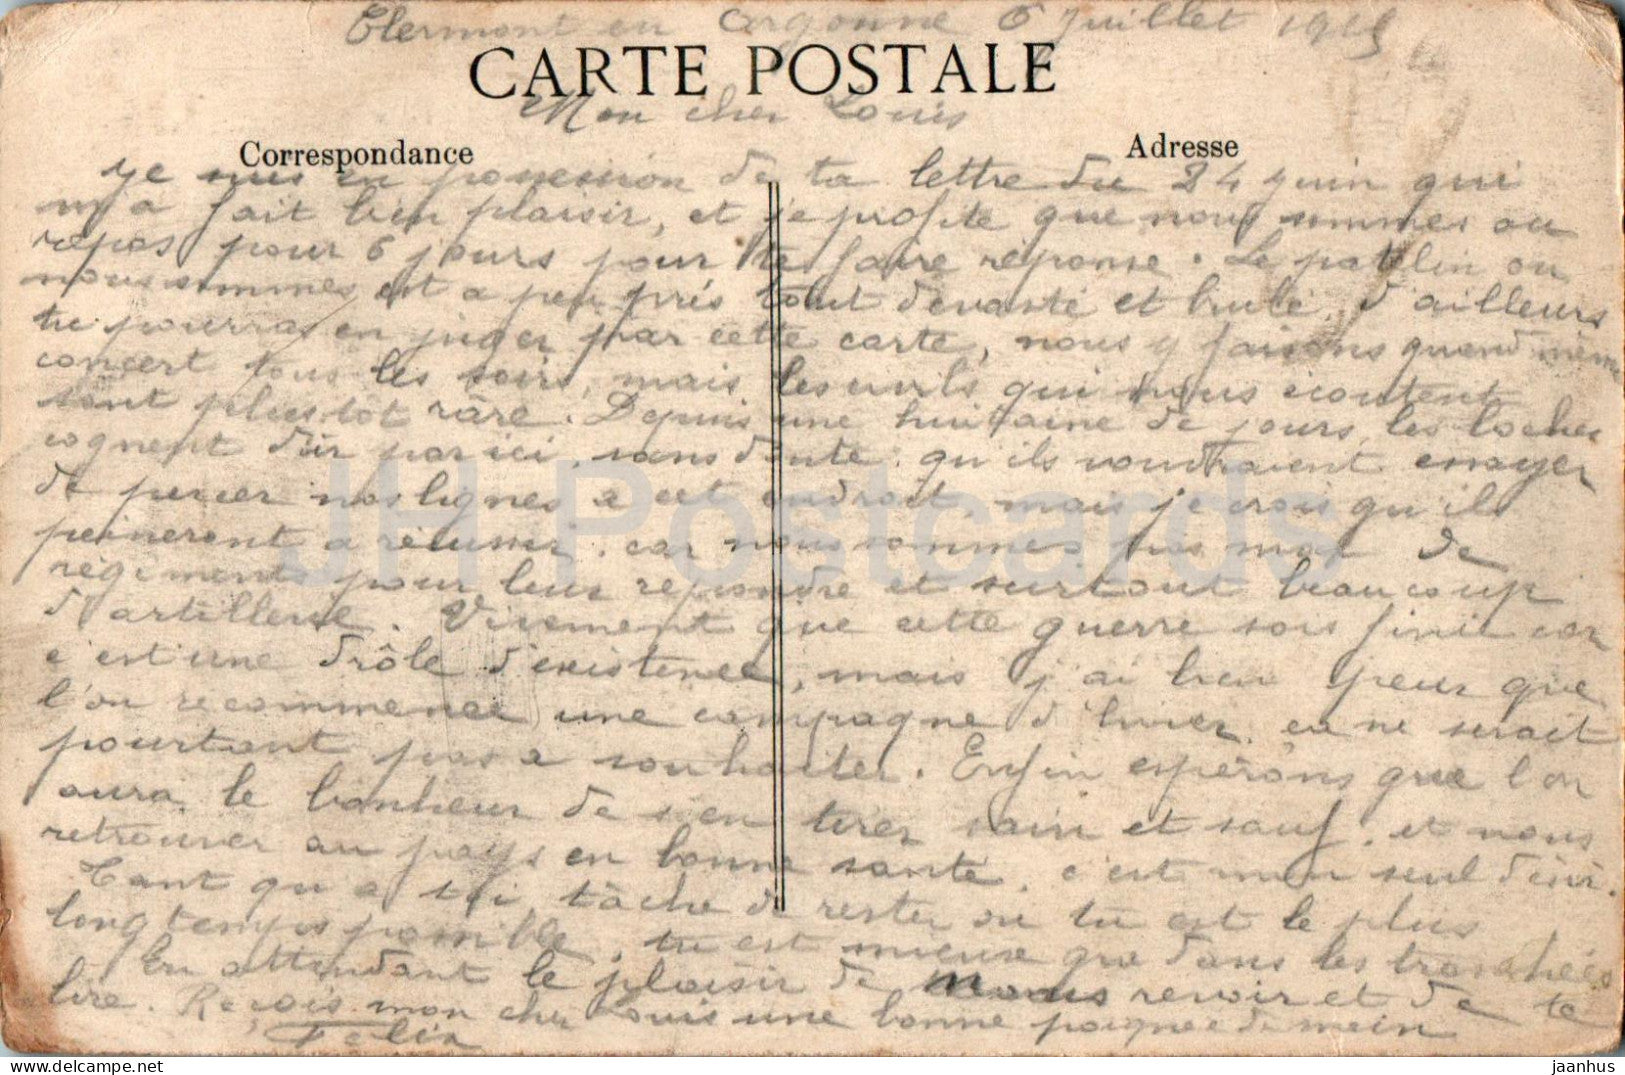 Clermont en Argonne 6 Juillet 1915
CARTE POSTALE
Mon cher Louis
Correspondance
Adresse
Je suis en possession de ta lettre du 24 juin qui
m'a fait bien plaisir, et je profite que nous sommes au
repos pour 6 jours pour te faire reponse. Le patelin ou
nous sommes est a peu près tout devasté et brulé, d'ailleurs
tu pourras en juger par cette carte, nous y faisons quand même
concert tous les soirs, mais les civils qui nous ecoutent
sont plustôt râre. Depuis une huitaine de jours, les boches
cognent dur par ici, sans doute qu'ils voudraient essayer
de percer nos lignes a cet endroit, mais je crois qu'ils
peineront a reussir, car nous sommes pas mal de
régiments pour leur repondre et surtout beaucoup
d'artillerie. Vivement que cette guerre sois finie car
c'est une drôle d'existence, mais j'ai bien peur que
l'on recommence une campagne d'hiver, ca ne serait
pourtant pas a souhaiter. Enfin espérons que l'on
aura le bonheur de s'en tirer sain et sauf, et nous
retrouver au pays en bonne santé, c'est mon seul désir.
Tant qu'a toi tâche de rester ou tu est le plus
longtemps possible, tu est mieux que dans les tranchées
En attendant le plaisir de nous revoir et de te
lire. Reçois mon cher Louis une bonne poignee de main
Felix
JH Postcards
jaanhus